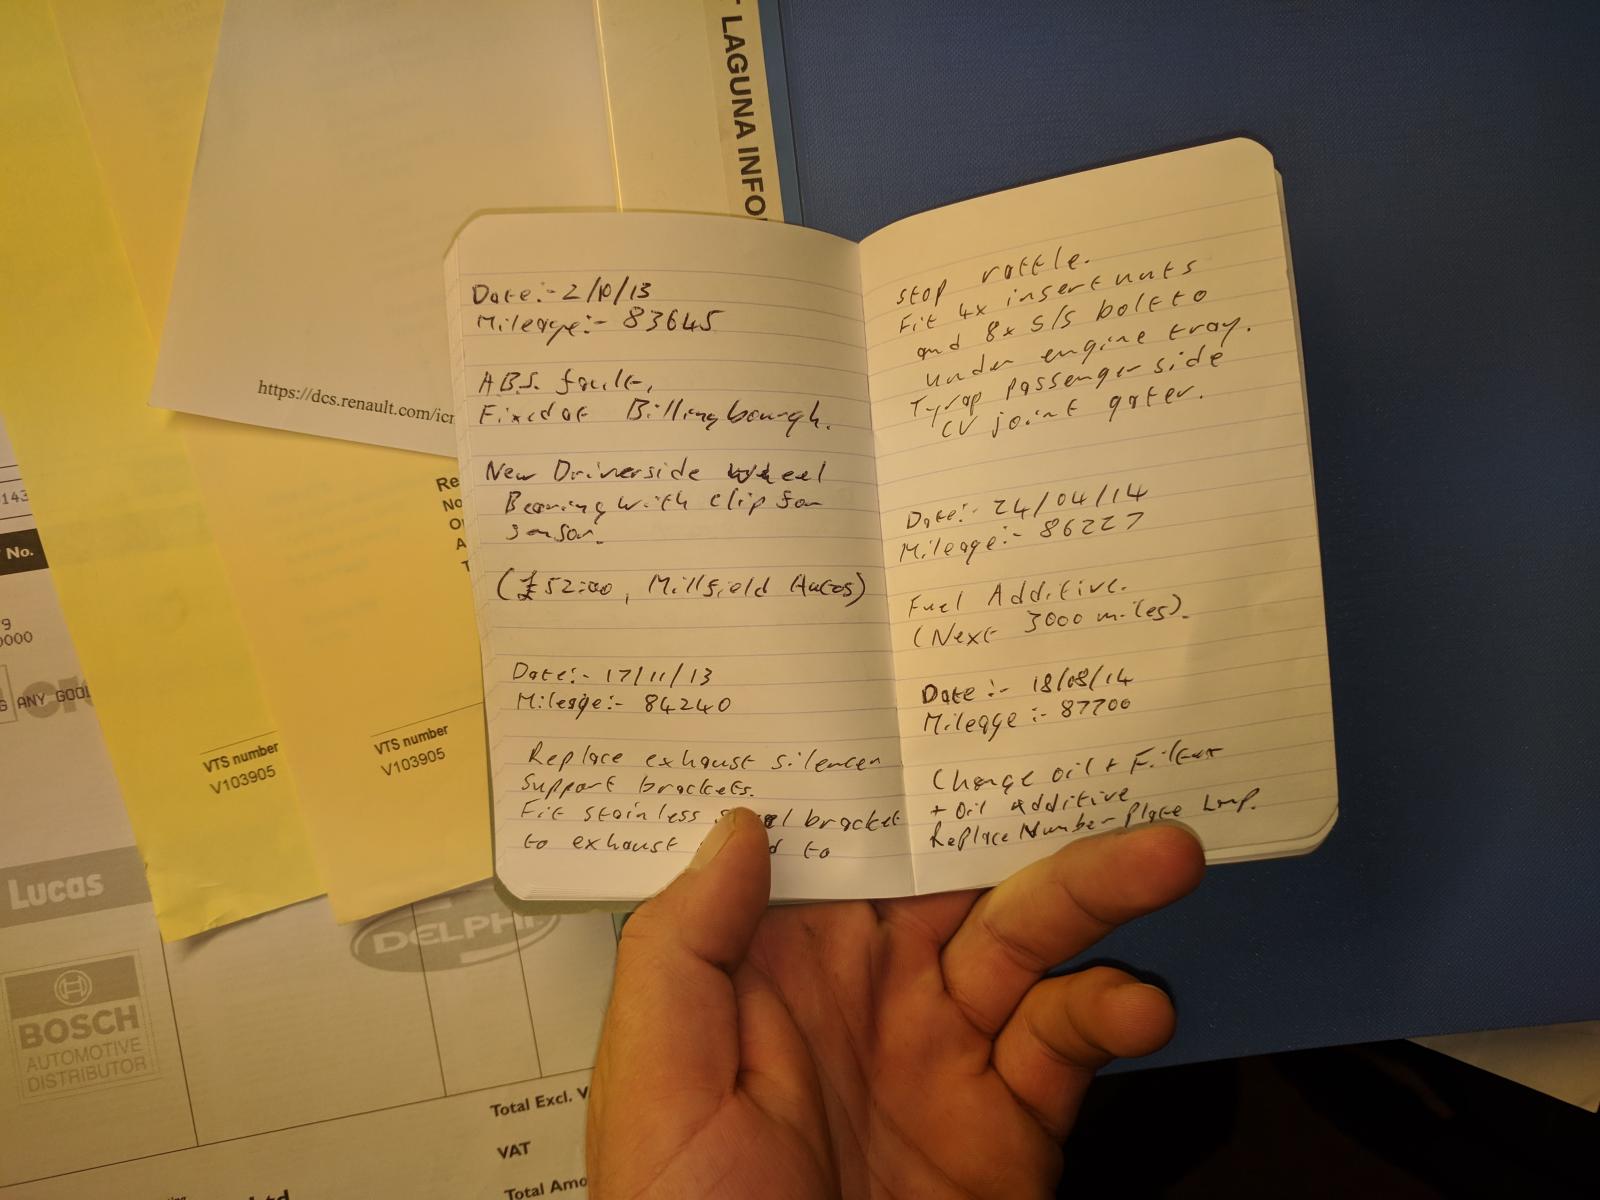 T LAGUNA INFO
https://dcs.renault.com/icr
Re
No
O
A
T
143
No.
9
0000
G ANY GOOD
VTS number
V103905
VTS number
V103905
Lucas
DELPHI
BOSCH
AUTOMOTIVE
DISTRIBUTOR
Total Excl. V
VAT
Total Amo
Date:- 2/10/13
Mileage:- 83645
A.B.S. fault,
Fixed at Billingbourgh.
New Driverside Wheel
Bearing with clip for
sensor.
(£52:00, Millfield Autos)
Date:- 17/11/13
Mileage:- 84240
Replace exhaust silencer
support brackets.
Fit stainless bracket
to exhaust to
stop rattle.
Fit 4x insert nuts
and 8x S/S bolt to
under engine tray.
Tyrap passenger side
CV joint gater.
Date:- 24/04/14
Mileage:- 86227
Fuel Additive.
(Next 3000 miles).
Date:- 18/08/14
Mileage:- 87700
Change oil + Filter
+ Oil Additive
Replace Number Plate Lamp.